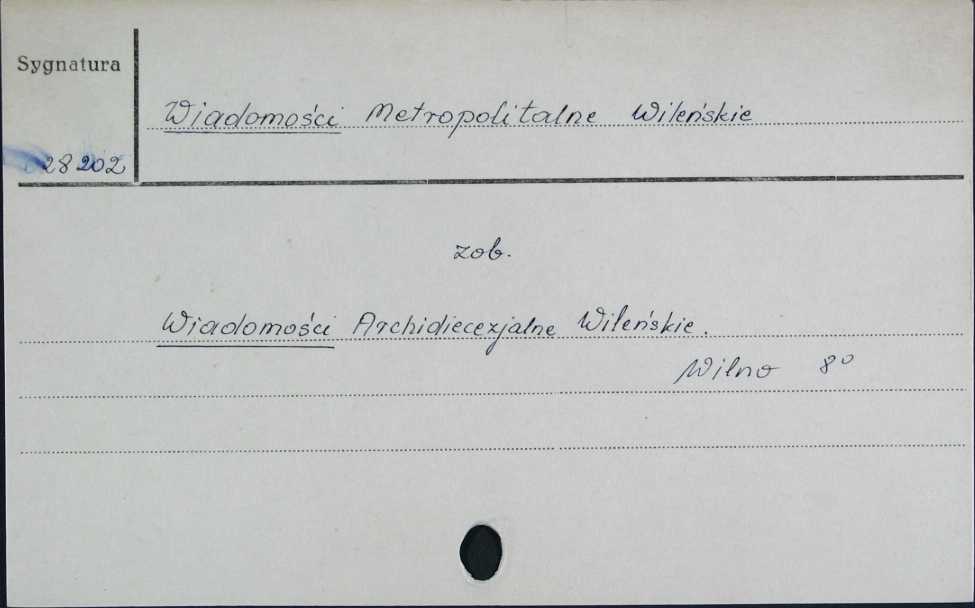 Sygnatura
Wiadomości Metropolitalne Wileńskie
28202
zob.
Wiadomości Archidiecezjalne Wileńskie.
Wilno 8º